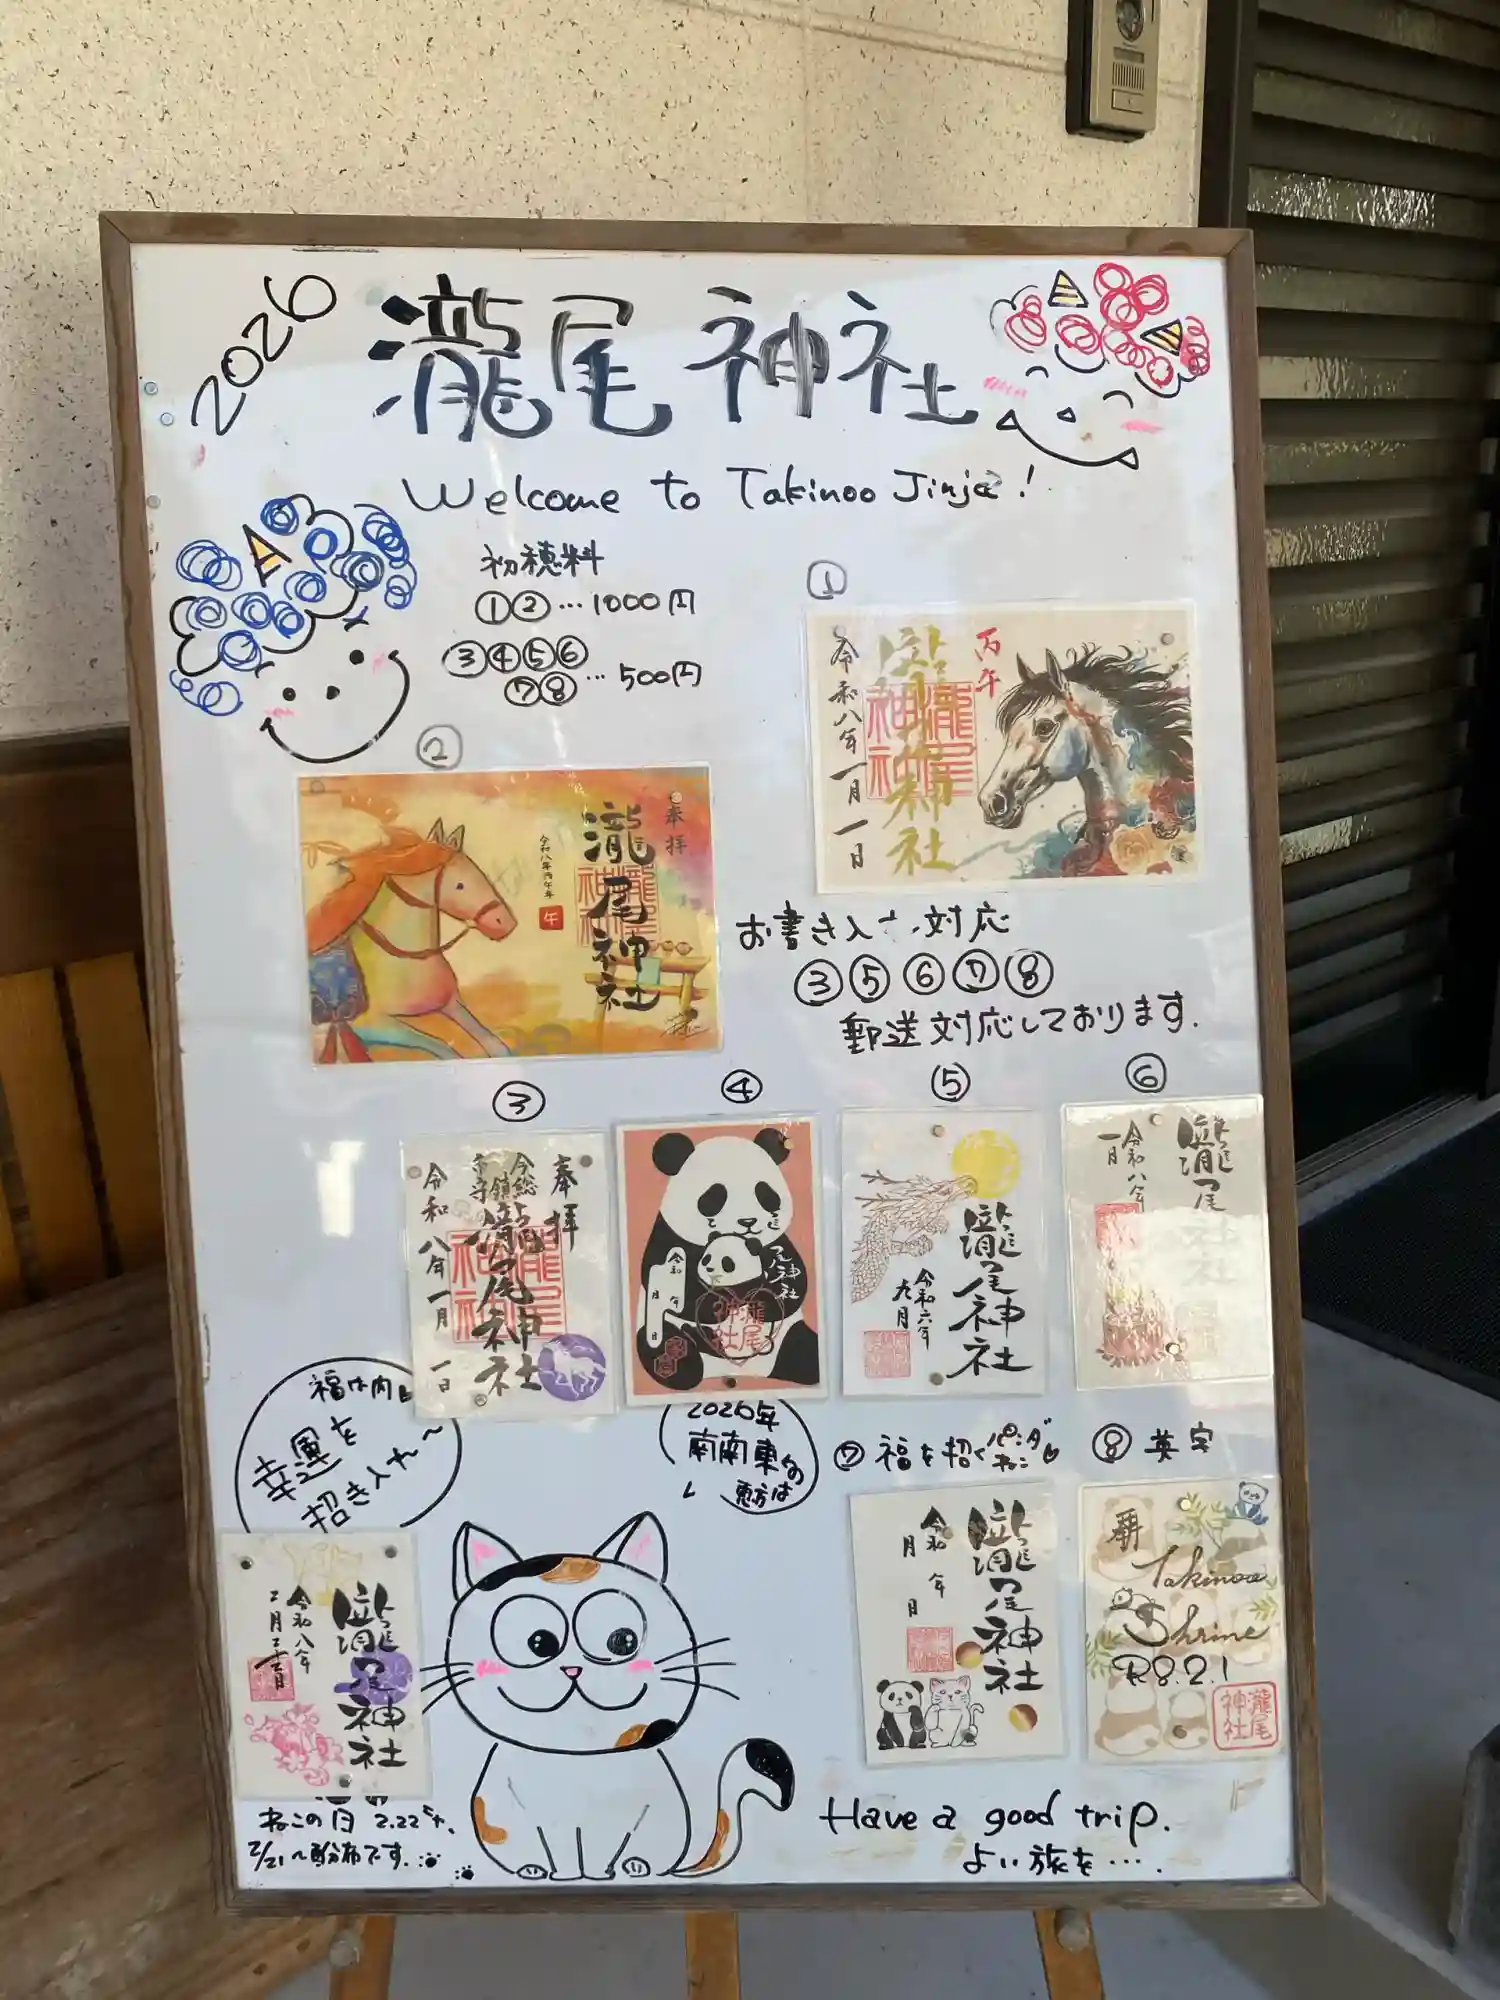 2026
瀧尾神社
Welcome to Takinoo Jinja!
初穂料
①②…1000円
③④⑤⑥
⑦⑧…500円
①
丙午
瀧尾神社
令和八年一月一日
②
奉拝
瀧尾神社
令和八年丙午年
午
お書き入れ対応
③⑤⑥⑦⑧
郵送対応しております.
③
奉拝
今市総鎮守
瀧尾神社
令和八年一月一日
④
尾神社
令和 年 月 日
瀧尾神社
⑤
瀧尾神社
令和六年
九月
⑥
瀧尾
令和八年
一月
福は内
幸運を
招き入れ〜
2026年
南南東
恵方は
⑦ 福を招くパンダ
ねこ
⑧ 英字
瀧尾神社
令和 年
月 日
Takinoo
Shrine
R8.2.1
瀧尾神社
瀧尾神社
令和八年
ねこの日 2.22
2/21〜頒布です.
Have a good trip.
よい旅を….